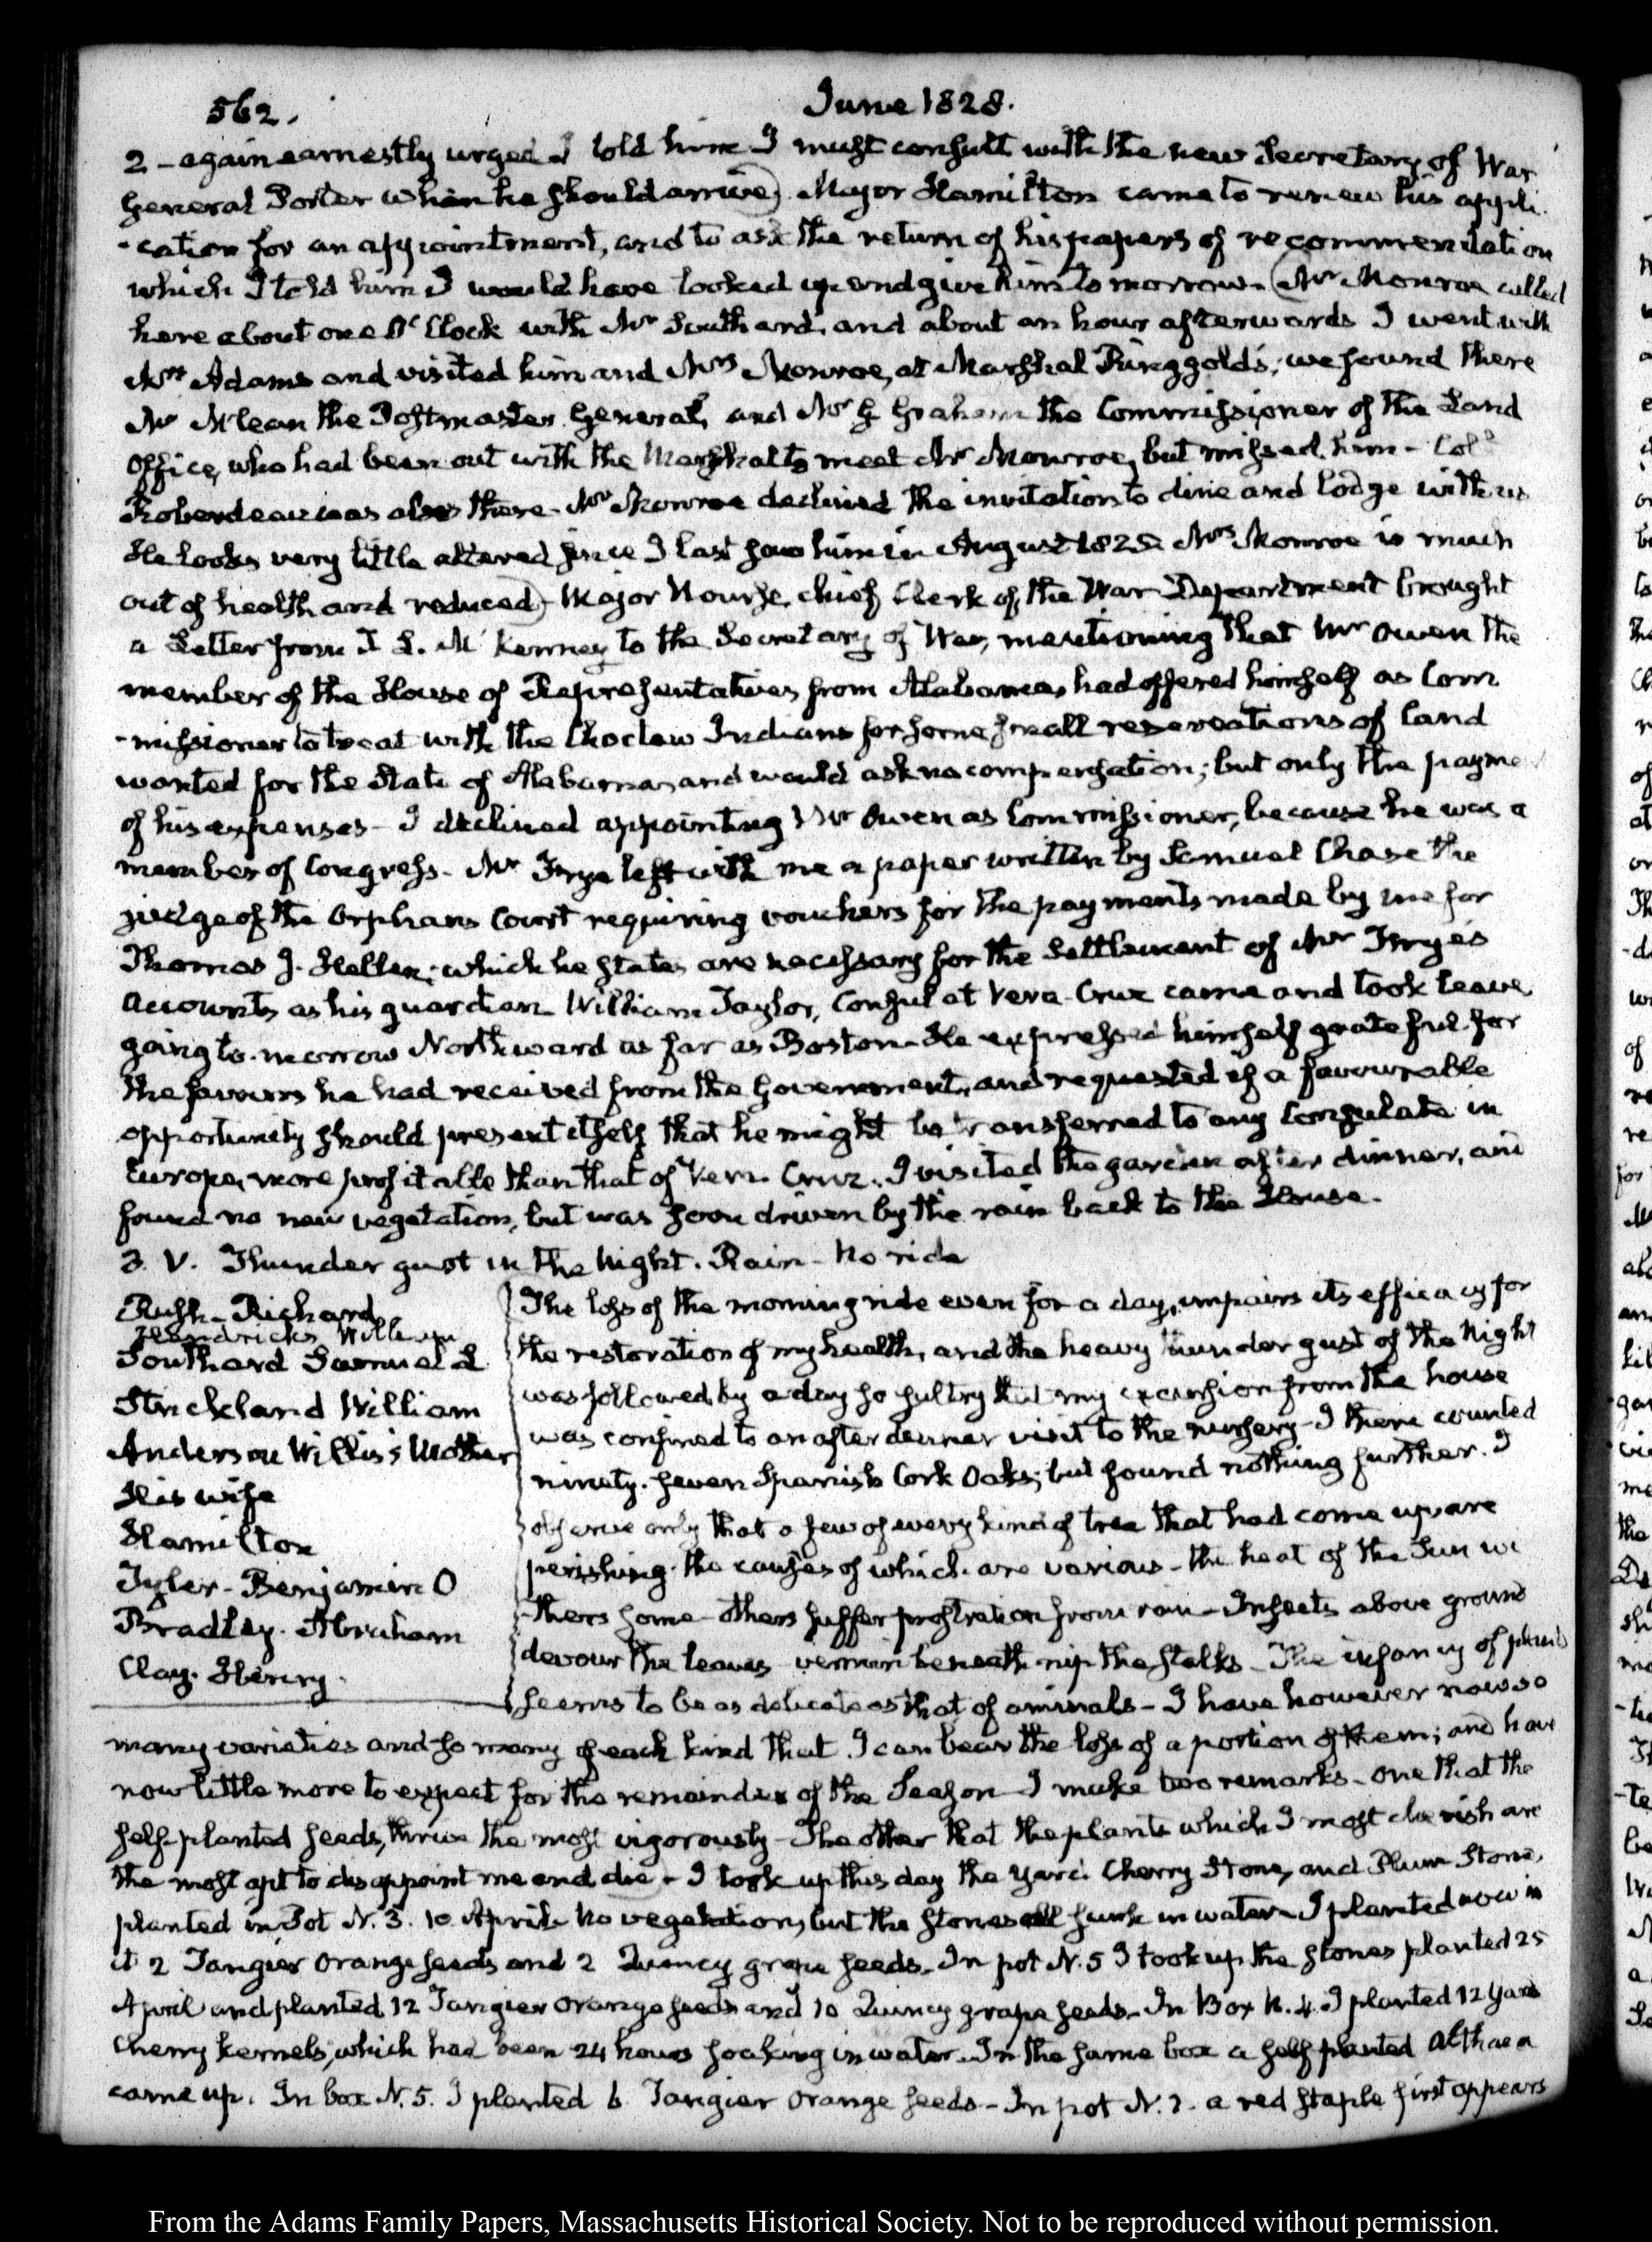 562.
June 1828.
2 - again earnestly urged I told him I must consult with the new Secretary of War
General Porter when he should arrive) Major Hamilton came to renew his appli-
-cation for an appointment, and to ask the return of his papers of recommendation
which I told him I would have looked up and give him to morrow. (Mr Monroe called
here about one O'Clock with Mr Southard, and about an hour afterwards I went with
Mrs Adams and visited him and Mrs Monroe, at Marshal Ringgold's; we found there
Mr McLean the Postmaster General, and Mr G Graham the Commissioner of the Land
Office, who had been out with the Marshal to meet Mr Monroe, but missed him - Coll
Roberdeau was also there. Mr Monroe declined the invitation to dine and lodge with us
He looks very little altered since I last saw him in August 1825. Mrs Monroe is much
out of health and reduced) - Major Nourse, chief Clerk of the War Department brought
a Letter from T. L. McKenney to the Secretary of War, mentioning that Mr Owen the
member of the House of Representatives from Alabama, had offered himself as Com
-missioner to treat with the Choctaw Indians for some small reservations of land
wanted for the State of Alabama, and would ask no compensation; but only the payme
of his expenses - I declined appointing Mr Owen as Commissioner, because he was a
member of Congress. Mr Frye left with me a paper written by Samuel Chase the
judge of the Orphans Court requiring vouchers for the payments made by me for
Thomas J. Hellen; which he states are necessary for the Settlement of Mr Frye's
accounts as his guardian. William Taylor, Consul at Vera-Cruz came and took leave,
going to-morrow Northward as far as Boston. He expressed himself grateful for
the favours he had received from the Government, and requested if a favourable
opportunity should present itself that he might be transferred to any Consulate in
Europe, more profitable than that of Vera Cruz. I visited the garden after dinner, and
found no new vegetation, but was soon driven by the rain back to the House.
3. V. Thunder gust in the Night. Rain - No ride
Rush - Richard
Hendricks William
Southard Samuel L
Strickland William
Anderson Willis's Mother
His wife
Hamilton
Tyler - Benjamin O
Bradley. Abraham
Clay. Henry.
The loss of the morning ride even for a day, impairs its efficacy for
the restoration of my health, and the heavy thunder gust of the Night
was followed by a day so sultry that my excursion from the house
was confined to an after dinner visit to the nursery - I there counted
ninety-seven Spanish Cork Oaks; but found nothing further. I
observe only that a few of every kind of tree that had come up are
perishing. the causes of which are various - the heat of the Sun wi
-thers some - others suffer prostration from rain - Insects above ground
devour the leaves - vermin beneath nip the stalks - The infancy of plants
seems to be as delicate as that of animals - I have however now so
many varieties and so many of each kind that I can bear the loss of a portion of them; and have
now little more to expect for the remainder of the Season - I make two remarks - one that the
self-planted seeds, thrive the most vigorously - The other that the plants which I most cherish are
the most apt to disappoint me and die - I took up this day the yard Cherry Stone, and Plum Stone,
planted in Pot N. 3. 10 April. No vegetation, but the stones all sunk in water - I planted now in
it 2 Tangier orange seeds and 2 Quincy grape seeds. In pot N. 5 I took up the stones planted 25
April and planted 12 Tangier orange seeds and 10 Quincy grape seeds. In Box N. 4. I planted 12 Yard
Cherry kernels, which had been 24 hours soaking in water. In the same box a self planted althaea
came up. In box N. 5. I planted 6 Tangier orange seeds - In pot N. 7. a red staple first appears
From the Adams Family Papers, Massachusetts Historical Society. Not to be reproduced without permission.